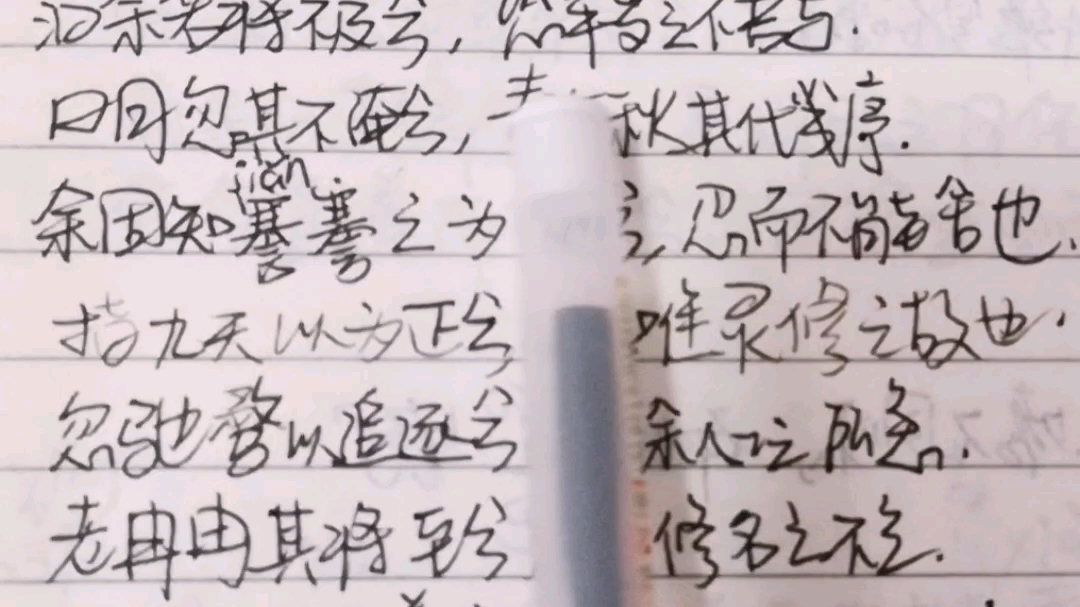 汩余若将不及兮，恐年岁之不吾与.
日月忽其不淹兮，春 秋其代序.
jian
余固知謇謇之为 忍而不能舍也.
指九天以为正兮 唯灵修之故也.
忽驰骛以追逐兮 余心之所急.
老冉冉其将至兮 修名之不立.